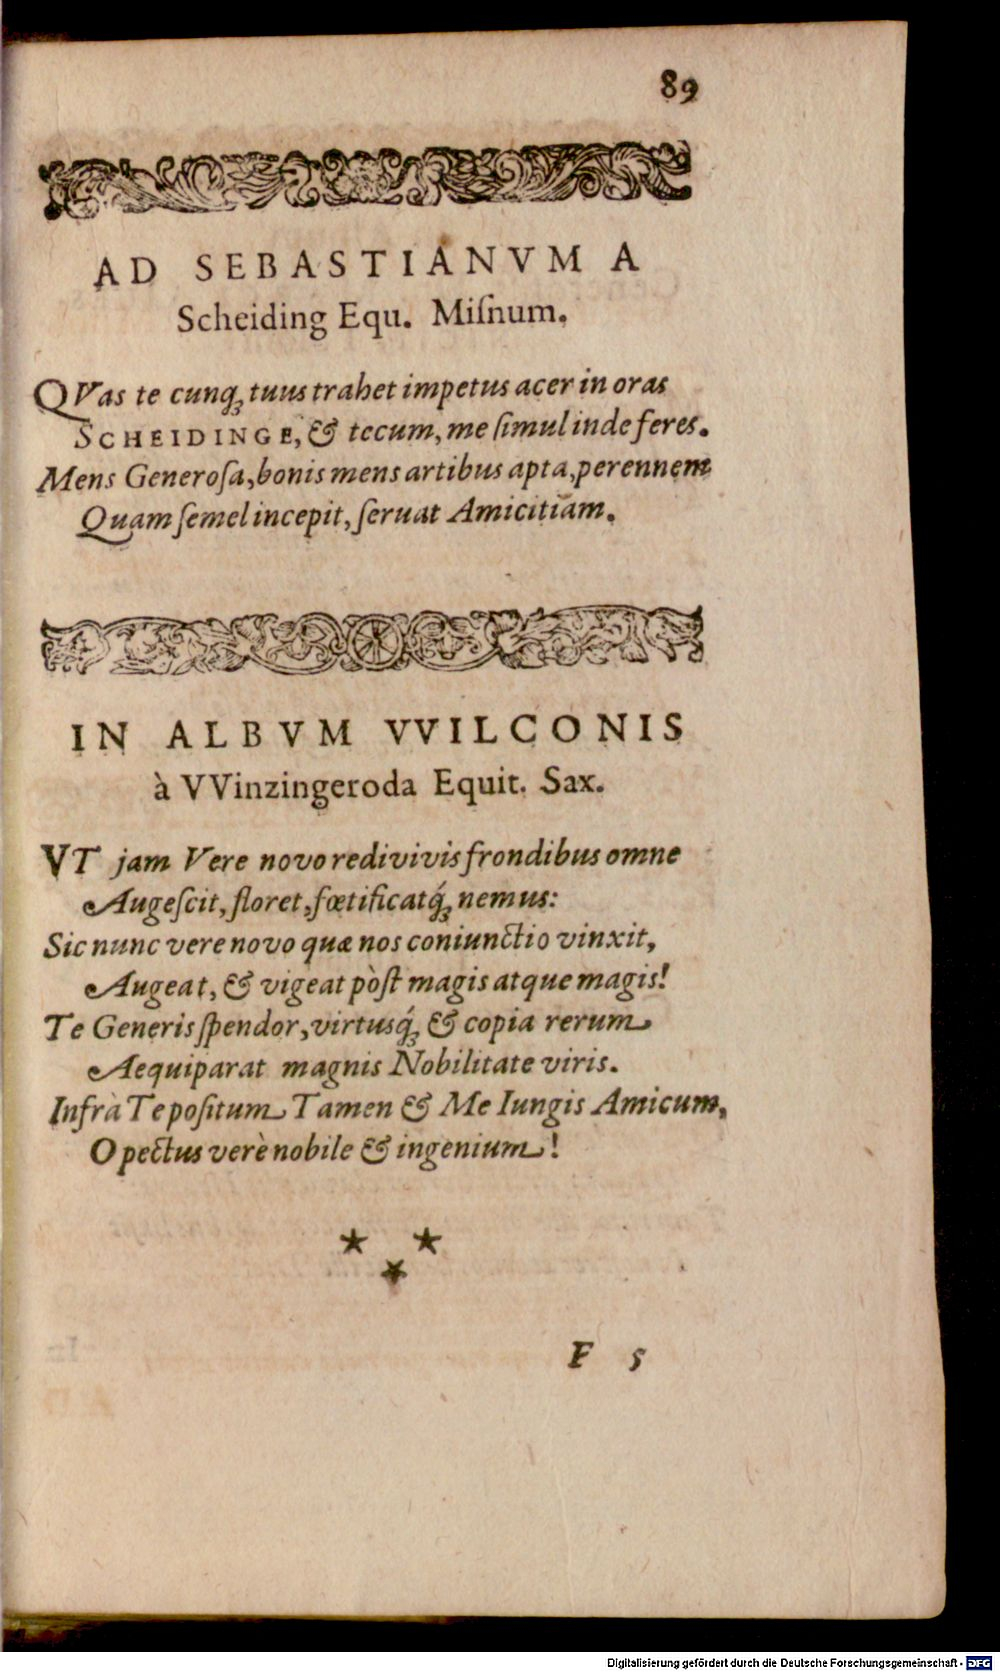 89
AD SEBASTIANVM A
Scheiding Equ. Miſnum.
QVas te cunq́; tuus trahet impetus acer in oras
SCHEIDINGE, & tecum, me ſimul inde feres.
Mens Generoſa, bonis mens artibus apta, perennem
Quam ſemel incepit, ſeruat Amicitiam.
IN ALBVM VVILCONIS
à VVinzingeroda Equit. Sax.
VT jam Vere novo redivivis frondibus omne
Augeſcit, floret, fœtificatq́; nemus:
Sic nunc vere novo quæ nos coniunctio vinxit,
Augeat, & vigeat pòſt magis atque magis!
Te Generis ſpendor, virtusq́; & copia rerum
Aequiparat magnis Nobilitate viris.
Infrà Te poſitum Tamen & Me Iungis Amicum,
O pectus verè nobile & ingenium!
* * *
F 5
Digitalisierung gefördert durch die Deutsche Forschungsgemeinschaft - DFG